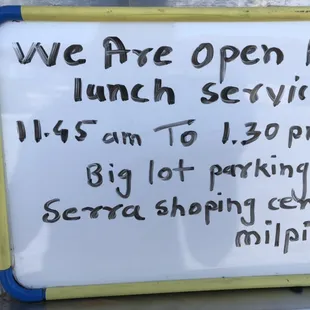 We Are open
lunch servic
11.45 am To 1.30 p
Big lot parking
Serra shoping cen
milpi